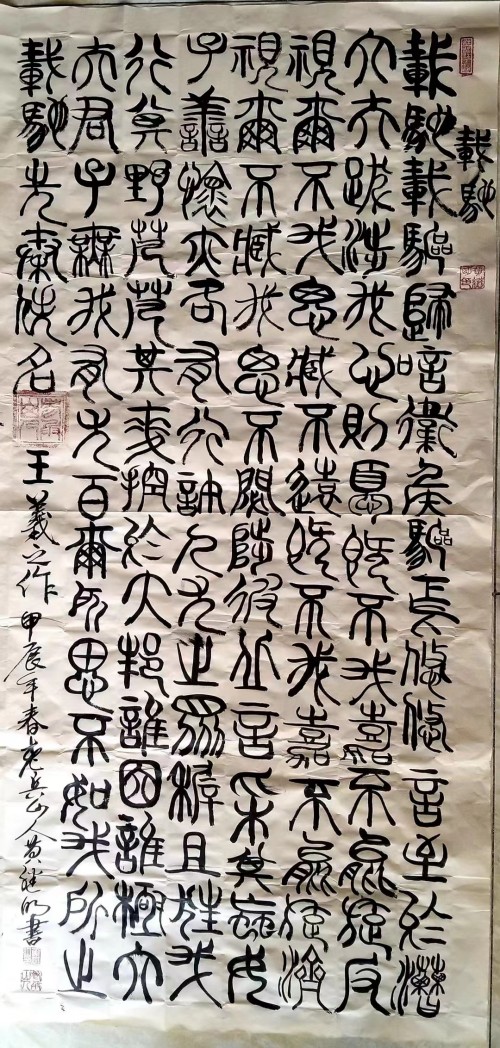 載馳
載馳載驅歸唁衛侯驅馬悠悠言至於漕
大夫跋涉我心則憂既不我嘉不能旋反
視爾不我思臧不遠既不我嘉不能旋濟
視爾不臧我思不閟陟彼丘言采其蝱女
子善懷亦各有行許人尤之眾穉且狂我
行其野芃芃其麥控於大邦誰因誰極大
夫君子無我有尤百爾所思不如我所之
載馳先秦佚名
王羲之作甲辰年春老兵山人黄明書